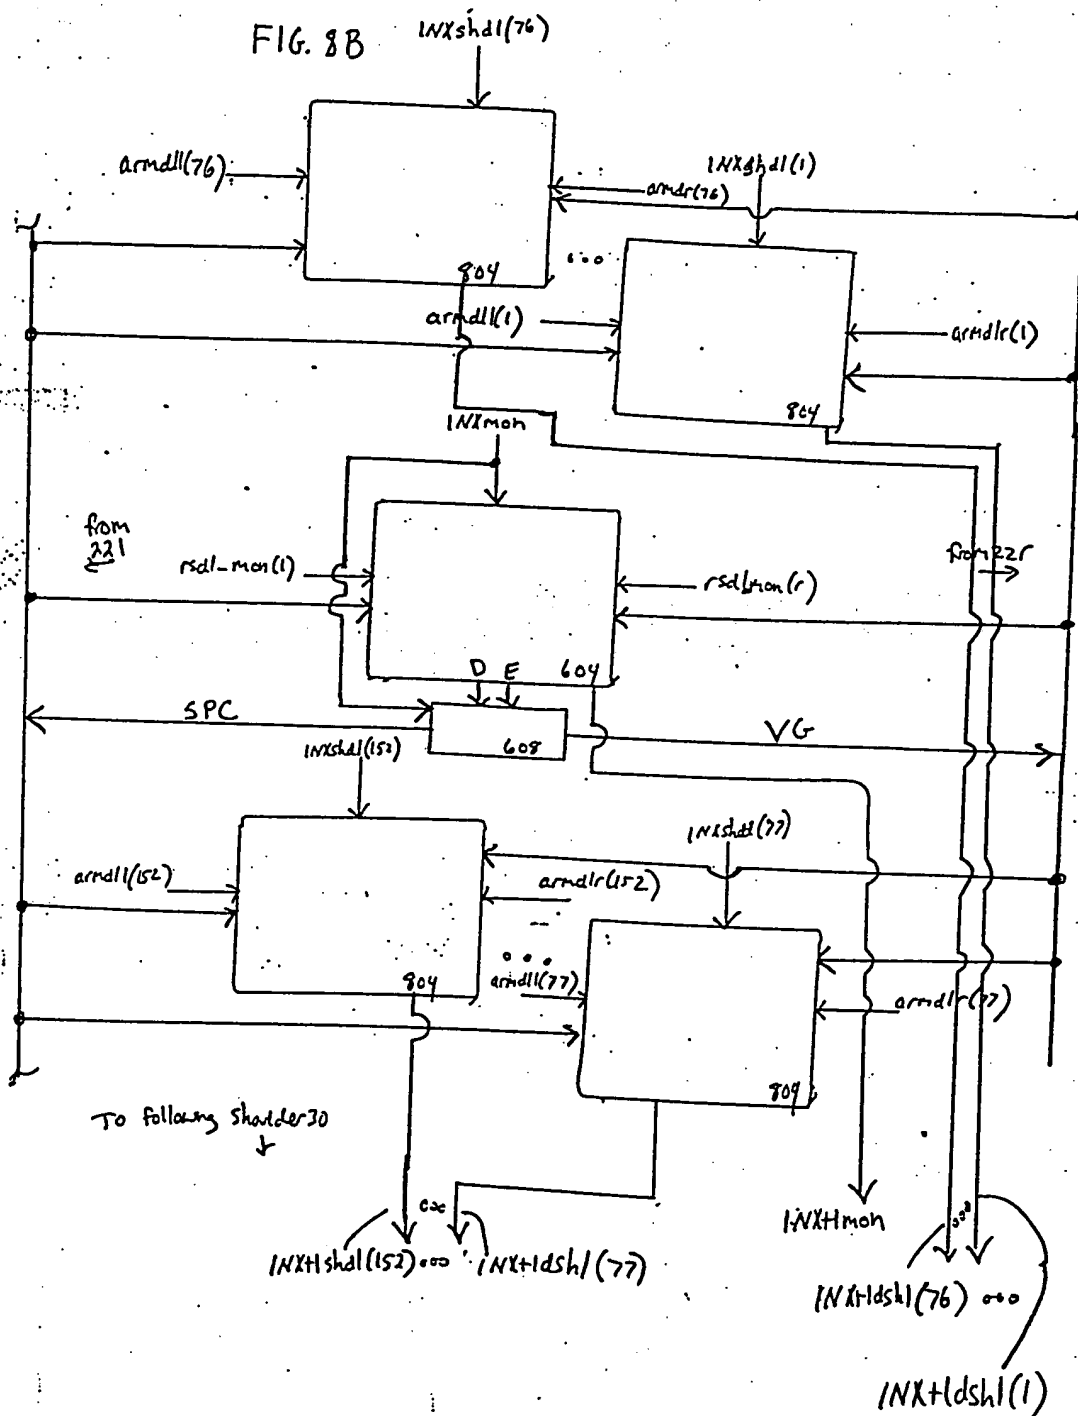 FIG. 8B
INXshdl(76)
armdll(76)
INXshdl(1)
armdr(76)
804
armdll(1)
armdlr(1)
804
INXmon
from
22l
from 22r
rsdl-mon(l)
rsdlmon(r)
D E 604
SPC
VG
608
INXshdl(152)
INXshdl(77)
armdll(152)
armdlr(152)
804
armdll(77)
armdlr(77)
804
To following shoulder 30
INX+1mon
INX+1shdl(152)... INX+1dshl(77)
INX+1dshl(76) ...
INX+1dshl(1)